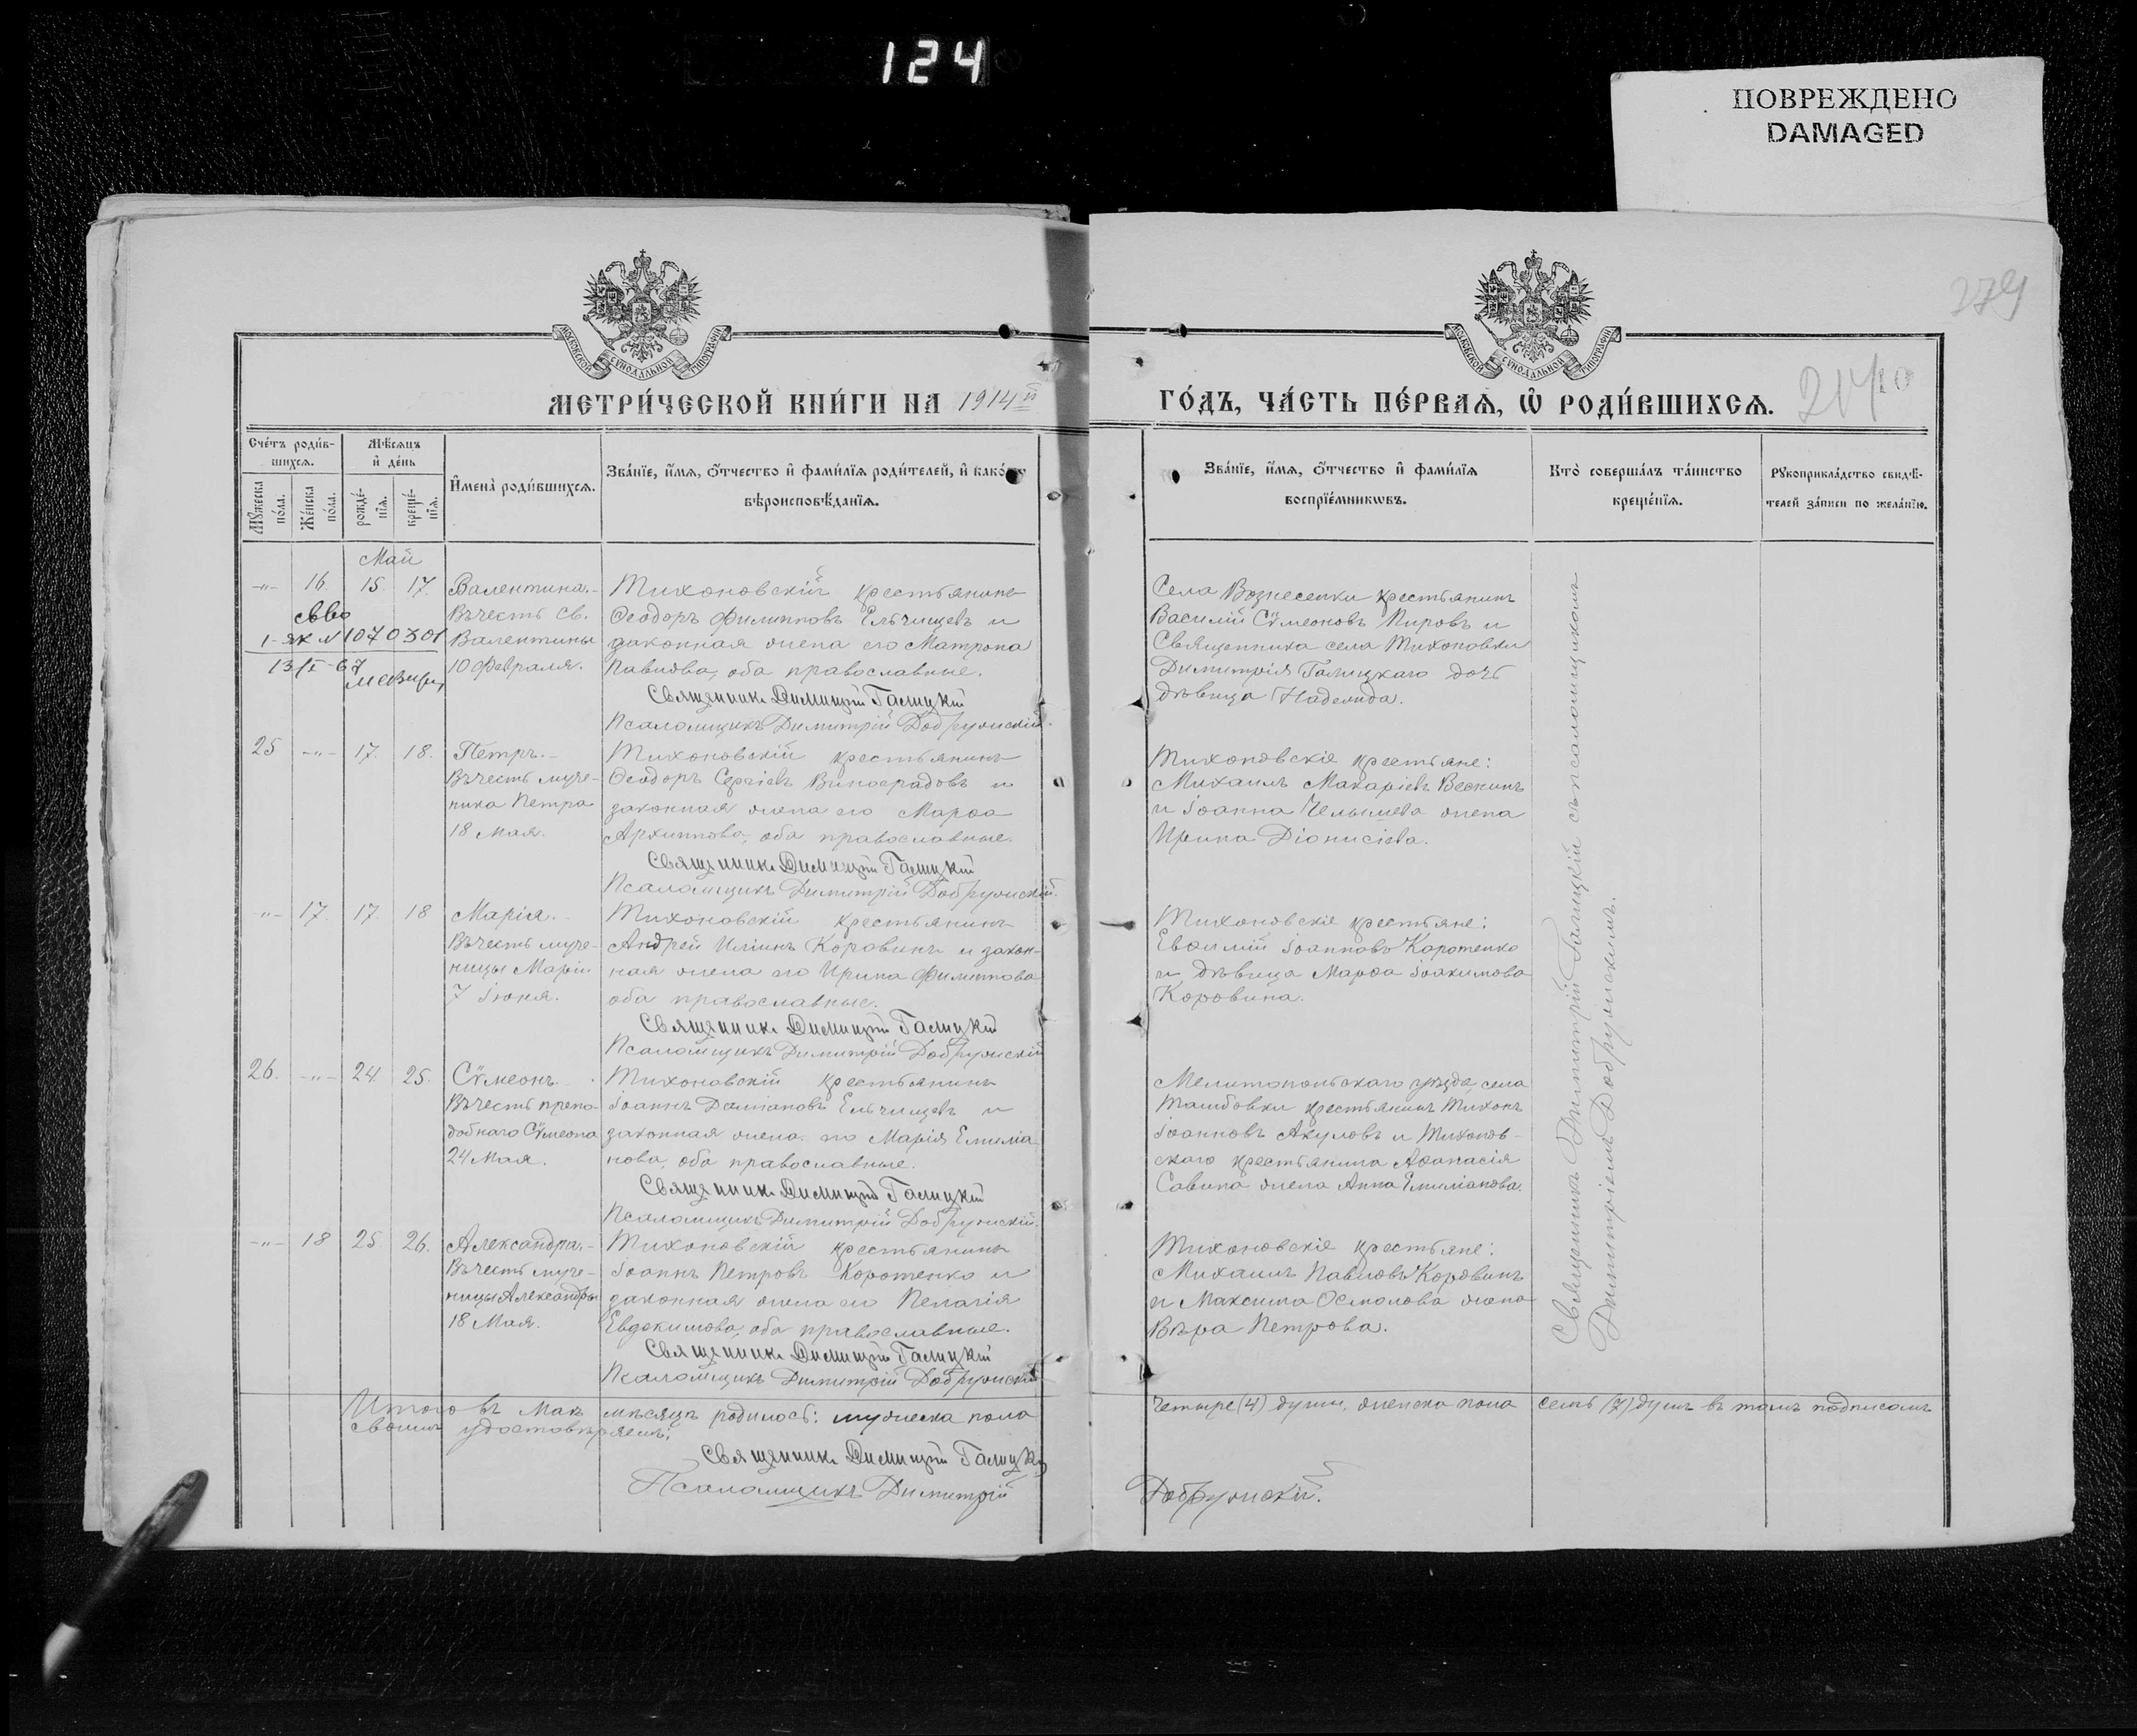 124
ПОВРЕЖДЕНО
DAMAGED
279
МОСКОВСКОЙ СѴНОДАЛЬНОЙ ТИПОГРАФІИ
МОСКОВСКОЙ СѴНОДАЛЬНОЙ ТИПОГРАФІИ
МЕТРИ́ЧЕСКОЙ КНИ́ГИ НА 1914й
ГО́ДЪ, ЧА́СТЬ ПЕ́РВАЯ, Ѡ҆ РОДИ́ВШИХСЯ.
Сче́тъ роди́в-
шихся.
Мѣ́сяцъ
и҆ де́нь
Мꙋ́жеска
по́ла.
Же́нска
по́ла.
рожде́-
нїѧ.
креще́-
нїѧ.
И҆мена̀ роди́вшихся.
Зва́нїе, и҆́мя, ѻ҆́тчество и҆ фами́лїя роди́телей, и҆ како́гѡ
вѣроисповѣ́данїя.
Зва́нїе, и҆́мя, ѻ҆́тчество и҆ фами́лїя
воспрїе́мникѡвъ.
Кто̀ соверша́лъ та́инство
креще́нїя.
Рꙋкоприкла́дство свидѣ́-
телей за́писи по жела́нїю.
Май
-"- 16 15 17. Валентина.-
Въ честь св.
Валентины
10 Февраля.
1-ЯК N 1070301
13/I-67
Тихоновскій крестьянинъ
Ѳеодоръ Филипповъ Ельчищевъ и
законная жена его Матрона
Павлова, оба православные.
Священникъ Димитрій Галицкій
Псаломщикъ Димитрій Добружскій.
Села Вознесенки крестьянинъ
Василій Сѵмеоновъ Пировъ и
Священника села Тихоновки
Димитрія Галицкаго дочь
дѣвица Надежда.
25 -"- 17. 18. Петръ.-
Въ честь муче-
ника Петра
18 Мая.
Тихоновскій крестьянинъ
Ѳеодоръ Сергіевъ Виноградовъ и
законная жена его Марѳа
Архиппова, оба православные.
Священникъ Димитрій Галицкій
Псаломщикъ Димитрій Добружскій.
Тихоновскіе крестьяне:
Михаилъ Макаріевъ Веснинъ
и Іоанна Челышева жена
Ирина Діонисіева.
-"- 17. 17. 18 Марія.-
Въ честь муче-
ницы Маріи
7 Іюня.
Тихоновскій крестьянинъ
Андрей Иліинъ Коровинъ и закон-
ная жена его Ирина Филиппова
оба православные.
Священникъ Димитрій Галицкій
Псаломщикъ Димитрій Добружскій
Тихоновскіе крестьяне:
Евѳимій Іоанновъ Коротенко
и дѣвица Марѳа Іоакимова
Коровина.
26. -"- 24. 25. Сѵмеонъ.
Въ честь препо-
добнаго Сѵмеона
24 Мая.
Тихоновскій крестьянинъ
Іоаннъ Даміановъ Ельчищевъ и
законная жена его Марія Емиліа-
нова, оба православные.
Священникъ Димитрій Галицкій
Псаломщикъ Димитрій Добружскій.
Мелитопольскаго уѣзда, села
Тамбовки крестьянинъ Тихонъ
Іоанновъ Акуловъ и Тихонов-
скаго крестьянина Аѳанасія
Савина жена Анна Емиліанова.
-"- 18 25. 26. Александра.-
Въ честь муче-
ницы Александры
18 Мая.
Тихоновскій крестьянинъ
Іоаннъ Петровъ Коротенко и
законная жена его Пелагія
Евдокимова, оба православные.
Священникъ Димитрій Галицкій
Псаломщикъ Димитрій Добружскій
Тихоновскіе крестьяне:
Михаилъ Павловъ Коровинъ
и Максима Осмолова жена
Вѣра Петрова.
Священникъ Димитрій Галицкій съ псаломщикомъ
Димитріемъ Добружскимъ.
Итого въ Маѣ мѣсяцѣ родилось: мужеска пола четыре (4) души, женска пола семь (7) душъ въ томъ подписомъ
своимъ удостовѣряемъ:
Священникъ Димитрій Галицкій
Псаломщикъ Димитрій Добружскій.